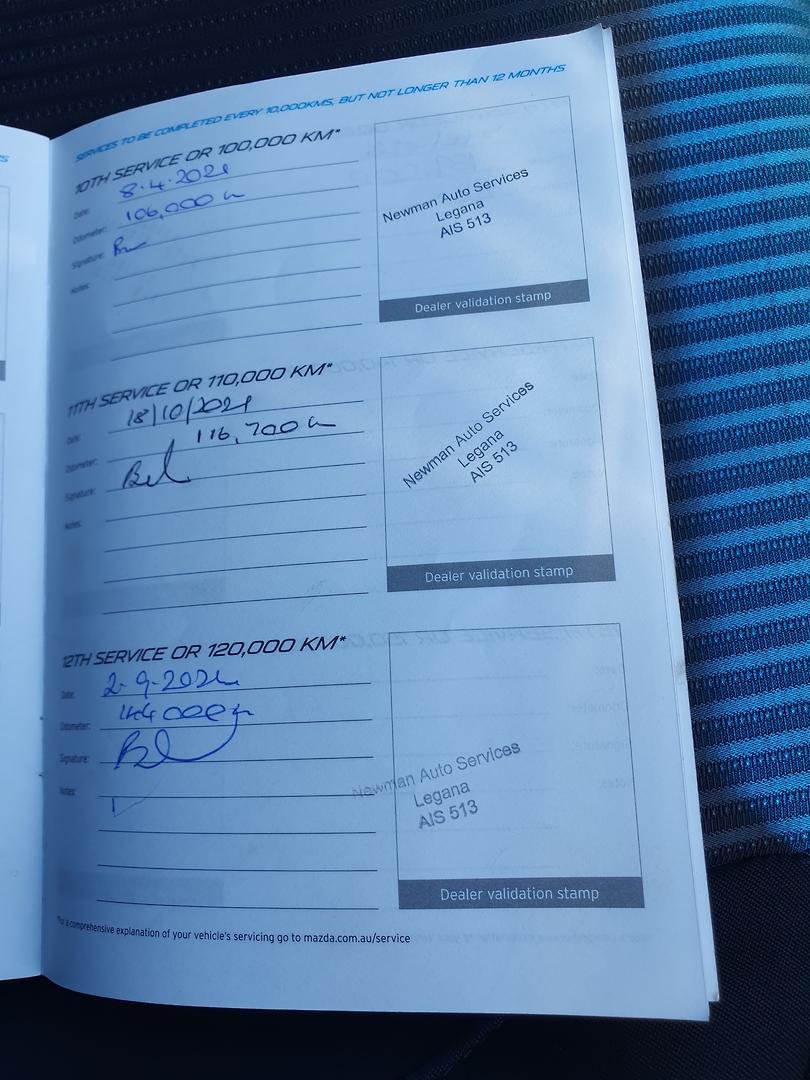 SERVICES TO BE COMPLETED EVERY 10,000KMS, BUT NOT LONGER THAN 12 MONTHS
10TH SERVICE OR 100,000 KM*
Date: 8.4.2021
Odometer: 106,000
Signature:
Notes:
Newman Auto Services
Legana
AIS 513
Dealer validation stamp
11TH SERVICE OR 110,000 KM*
Date: 18/10/2021
Odometer: 116,700
Signature:
Notes:
Newman Auto Services
Legana
AIS 513
Dealer validation stamp
12TH SERVICE OR 120,000 KM*
Date: 2.9.202
Odometer:
Signature:
Notes:
Newman Auto Services
Legana
AIS 513
Dealer validation stamp
*For a comprehensive explanation of your vehicle's servicing go to mazda.com.au/service